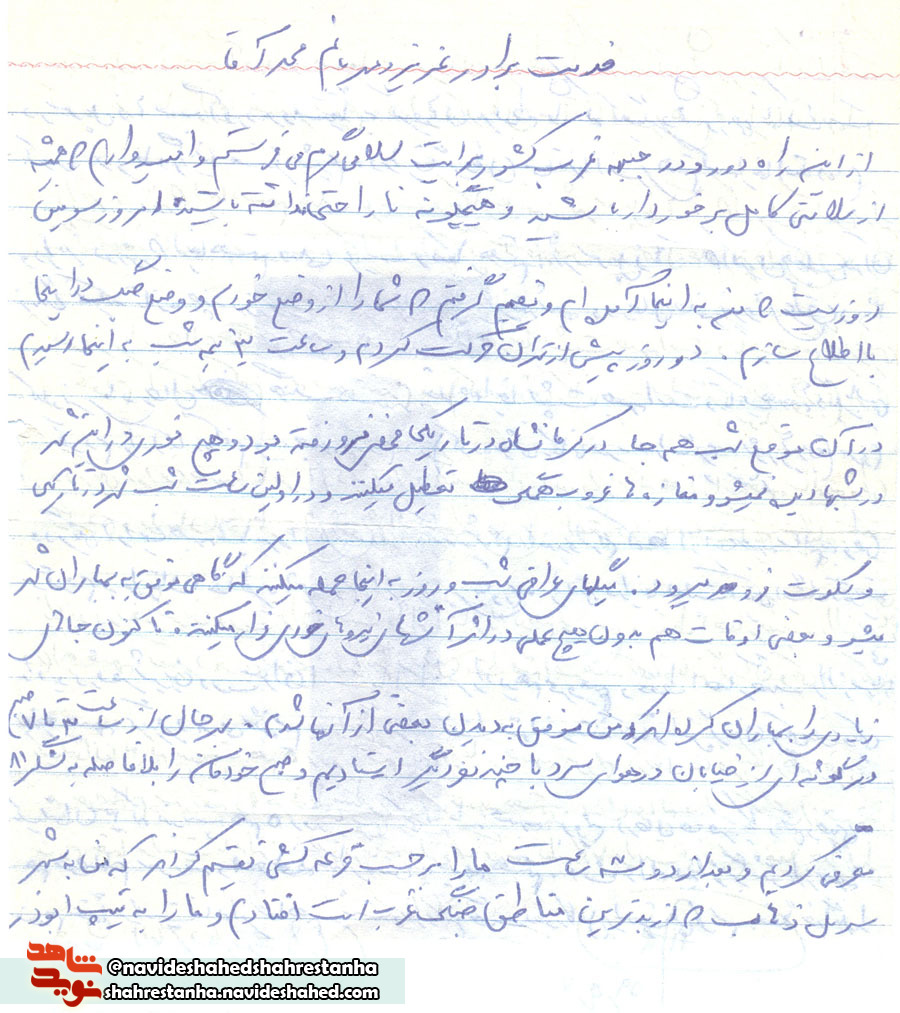 خدمت برادر عزیز و مهربانم محمد آقا
از این راه دور و در جبهه غرب کشور برایت سلامی گرم می فرستم و امیدوارم که همیشه
از سلامتی کامل برخوردار باشید و هیچگونه ناراحتی نداشته باشید. امروز سومین
روزیست که من به اینجا آمده ام و تصمیم گرفتم که شما را از وضع خودم و وضع جنگ در اینجا
با اطلاع سازم. دو روز پیش از تهران حرکت کردم و ساعت ۳ نیمه شب به اینجا رسیدم
در آن موقع شب همه جا در کرمانشاه در تاریکی محض فرو رفته بود و هیچ نوری در این شهر
در شبها دیده نمیشود و مغازه ها غروب همگی تعطیل میکنند و در اولین ساعت شب شهر در تاریکی
و سکوت فرو میرود. میگهای عراقی شب و روز به اینجا حمله میکنند که گاهی موفق به بمباران شهر
میشوند و بعضی اوقات هم بدون هیچ عملی در اثر آتشهای نیروهای خودی فرار میکنند. تا کنون جاهای
زیادی را بمباران کرده اند که من موفق به دیدن بعضی از آنها شدم. بهرحال از ساعت ۳ تا ۷ صبح
در گوشه ای از خیابان در هوای سرد با چند نفر دیگر ایستادیم و صبح خودمان را بلافاصله به لشگر ۸۱
معرفی کردیم و بعد از دو سه ساعت ما را بر حسب قرعه کشی تقسیم کردند که من به شهر
سرپل ذهاب که از بدترین مناطق جنگی غرب است افتادم و ما را به تیپ ابوذر
شاهد
نوید
©navideshahedshahrestanha
shahrestanha.navideshahed.com